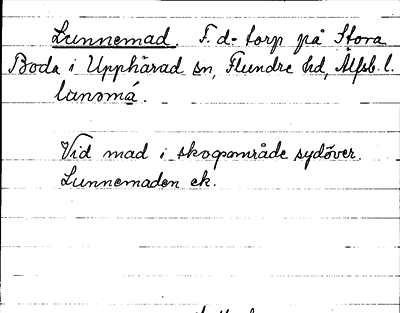 Lunnemad. F.d. torp på Stora
Boda i Upphärad sn, Flundre hd, Älfsb. l.
lunnəmá.
Vid mad i skogsområde sydöver.
Lunnemaden ek.